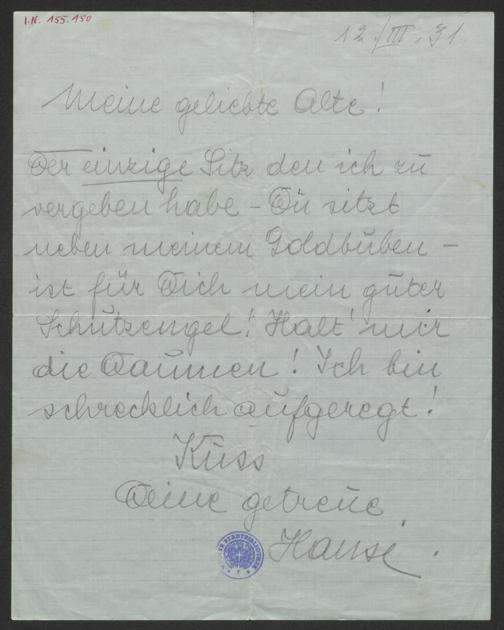 I.N. 155.150
12./III.31.
Meine geliebte Alte!
Der einzige Sitz den ich zu
vergeben habe – Du sitzt
neben meinem Goldbuben –
ist für Dich mein guter
Schutzengel! Halt' mir
die Daumen! Ich bin
schrecklich aufgeregt!
Kuss
Deine getreue
Hansi.